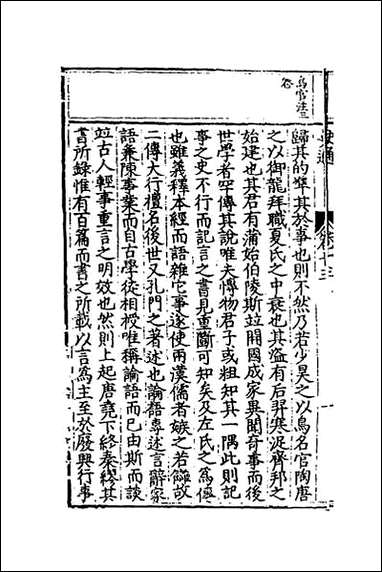 史通 卷十三
歸其的準其於事也則不然乃若少昊之以鳥名官陶唐
之以御龍拜職夏氏之中衰也其盜有后羿寒浞齊邦之
始建也其君有蒲始伯陵斯竝開國成家異聞奇事而後
世學者罕傳其說唯夫博物君子或粗知其一隅此則記
事之史不行而記言之書見重斷可知矣及左氏之為傳
也雖義釋本經而語雜它事遂使兩漢儒者嫉之若讎故
二傳大行擅名後世又孔門之著述也論語專述言辭家
語兼陳事業而自古學徒相授唯稱論語而已由斯而談
竝古人輕事重言之明效也然則上起唐堯下終秦繆其
書所錄惟有百篇而書之所載以言為主至於廢興行事
鳥官注三